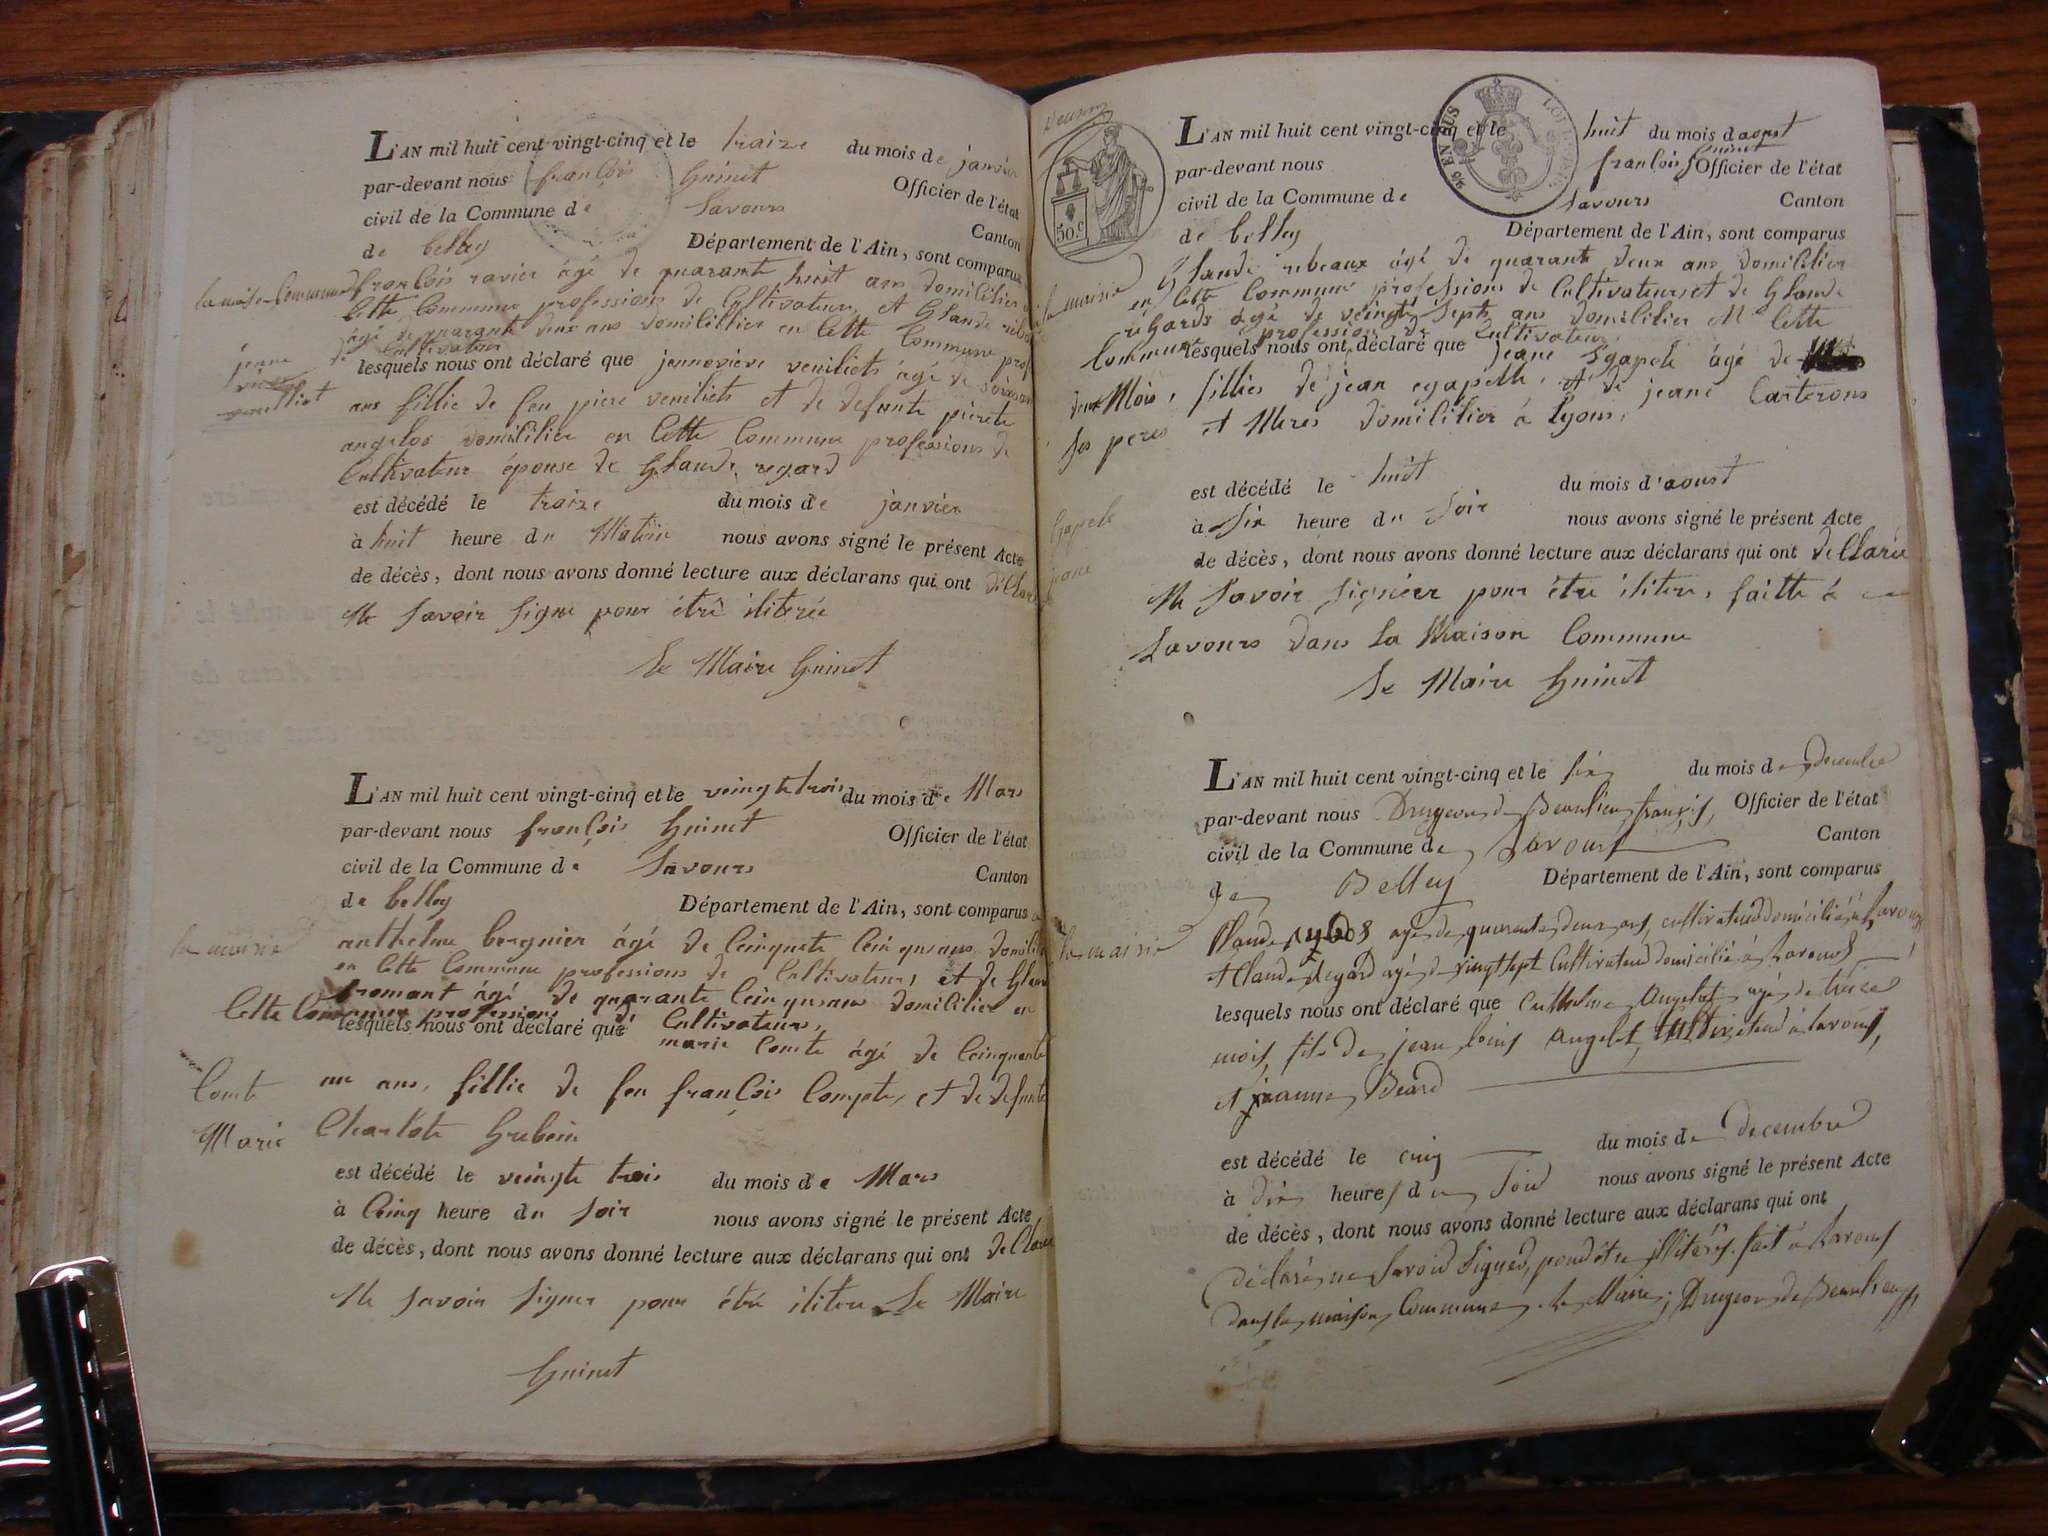 L'AN mil huit cent vingt-cinq et le traize du mois de janvier
par-devant nous françois Guinet Officier de l'état
civil de la Commune de Savours Canton
de belley Département de l'Ain, sont comparus
la maison Commune françois ravier âgé de quarante huit ans domicilier
Cette Commune professions de Cultivateur, et Glaude
âgé de quarante deux ans domicillier en Cette Commune prof
de Cultivateur
jeanne
lesquels nous ont déclaré que jenneviève veuilliets âgé de soixante
veuilliet
ans fillie de feu piere veuiliets et de defunte pierete
angelos domicilier en Cette Commune professions de
Cultivateur épouse de Glaude regard
est décédé le traize du mois de janvier
à huit heure du Matiin nous avons signé le présent Acte
de décès, dont nous avons donné lecture aux déclarans qui ont déClaré
Ne Savoir Signé pour être iliterée
Le Maire Guinet
L'AN mil huit cent vingt-cinq et le veingt trois du mois de Mars
par-devant nous françois Guinet Officier de l'état
civil de la Commune de Savours Canton
de belley Département de l'Ain, sont comparus
la mairie anthelme bergnier âgé de Cinquete Cinq ans domicilier
en Cette Commune professions de Cultivateur, et de Glaude
fromant âgé de quarante Cinq ans domicilier en
Cette Commune professions de Cultivateurs,
lesquels nous ont déclaré que marie Comte âgé de Cinquante
Comte un ans, fillie de feu françois Compte, et de defunte
Marie Charlote Gubein
est décédé le veingte trois du mois de Mars
à Cinq heure du soir nous avons signé le présent Acte
de décès, dont nous avons donné lecture aux déclarans qui ont deClaré
Ne savoir signer pour étré ilitere Le Maire
Guinet
50.c
L'AN mil huit cent vingt-cinq et le huit du mois d'aoust
par-devant nous françois Guinet Officier de l'état
civil de la Commune de Savours Canton
de belley Département de l'Ain, sont comparus
Glaude rebeaux âgé de quarante deux ans domicilier
la mairie en Cette Commune professions de Cultivateurs et de Glaude
régards âgé de veingte Septs ans domicilier en Cette
Commune profession de Cultivateur
lesquels nous ont déclaré que jeane Gapele âgé de
deux Mois, fillies de jean egapelle, et de jeane Carterons
ses peres et Meres domicilier à Lyons,
est décédé le huit du mois d'aoust
à Six heure du Soir nous avons signé le présent Acte
Gapele
jeane
de décès, dont nous avons donné lecture aux déclarans qui ont deClaréé
Ne Savoir Signéer pour être ilitere, faitte à
Savours dans la Maison Commune
Le Maire Guinet
L'AN mil huit cent vingt-cinq et le six du mois de Decembre
par-devant nous Drugeon de Beaulieu françois, Officier de l'état
civil de la Commune de Savours Canton
de Belley Département de l'Ain, sont comparus
la mairie Claude agé de quarante deux ans, cultivateur domicilié à Savours
et Claude Regard agé de vingt sept Cultivateur domicilié à Savours
lesquels nous ont déclaré que Anthelme Angelot agé de treize
mois, fils de jean louis Angelot, Cultivateur à Savours,
et jeanne Beard
est décédé le cinq du mois de decembre
à dix heures du Soir nous avons signé le présent Acte
de décès, dont nous avons donné lecture aux déclarans qui ont
déclaré ne Savoir Signer, pour être illiterés. fait à Savours
dans la maison Commune. le Maire, Drugeon de Beaulieu